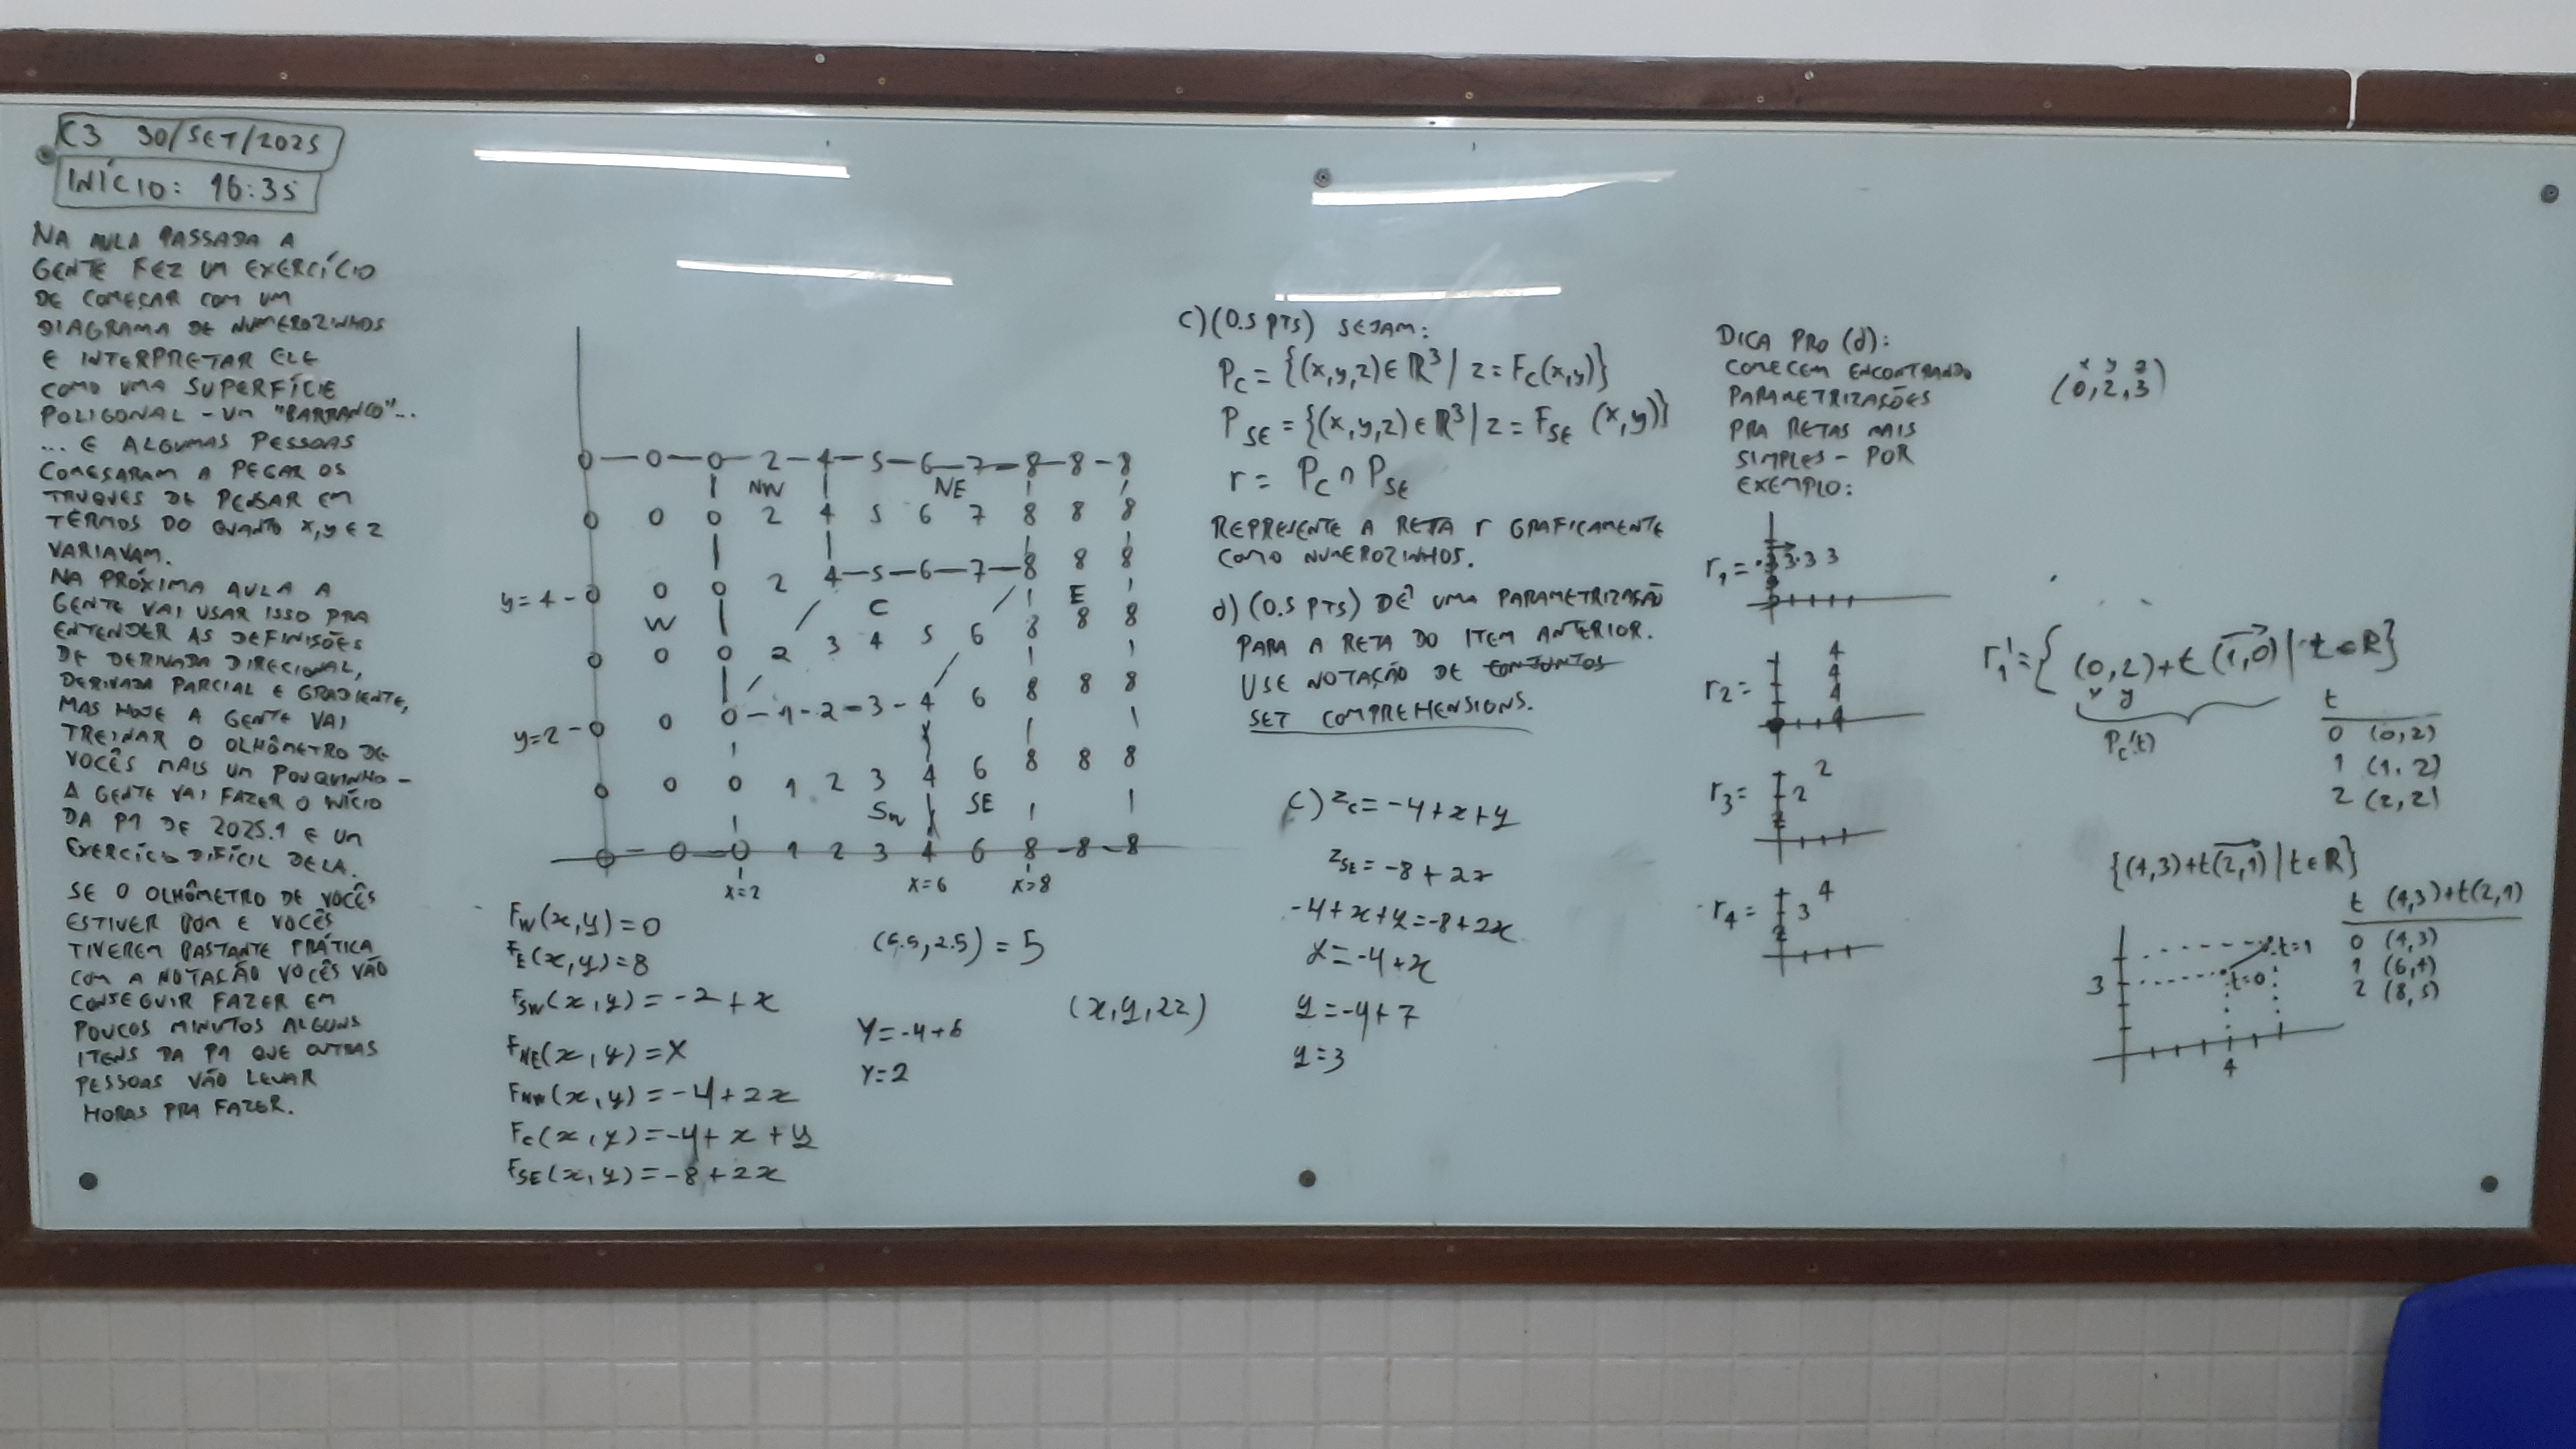 C3 30/SET/2025
INÍCIO: 16:35
NA AULA PASSADA A
GENTE FEZ UM EXERCÍCIO
DE COMEÇAR COM UM
DIAGRAMA DE NUMEROZINHOS
E INTERPRETAR ELE
COMO UMA SUPERFÍCIE
POLIGONAL - UM "BARRANCO"...
... E ALGUMAS PESSOAS
COMEÇARAM A PEGAR OS
TRUQUES DE PENSAR EM
TERMOS DO QUANTO x,y E z
VARIAVAM.
NA PRÓXIMA AULA A
GENTE VAI USAR ISSO PRA
ENTENDER AS DEFINIÇÕES
DE DERIVADA DIRECIONAL,
DERIVADA PARCIAL E GRADIENTE,
MAS HOJE A GENTE VAI
TREINAR O OLHÔMETRO DE
VOCÊS MAIS UM POUQUINHO -
A GENTE VAI FAZER O INÍCIO
DA P1 DE 2025.1 E UM
EXERCÍCIO DIFÍCIL DELA.
SE O OLHÔMETRO DE VOCÊS
ESTIVER BOM E VOCÊS
TIVEREM BASTANTE PRÁTICA
COM A NOTAÇÃO VOCÊS VÃO
CONSEGUIR FAZER EM
POUCOS MINUTOS ALGUNS
ITENS DA P1 QUE OUTRAS
PESSOAS VÃO LEVAR
HORAS PRA FAZER.
0 — 0 — 0 2 — 4 — 5 — 6 — 7 — 8 — 8 — 8
NW NE
0 0 0 2 4 5 6 7 8 8 8
y=4 - 0 0 0 2 4 — 5 — 6 — 7 — 8 8 8
W C E
0 0 0 2 3 4 5 6 8 8 8
y=2 - 0 0 0 — 1 - 2 - 3 - 4 6 8 8 8
0 0 0 1 2 3 4 6 8 8 8
SW SE
0 — 0 — 0 1 2 3 4 6 8 - 8 - 8
x=2 x=6 x=8
F_W(x,y)=0
F_E(x,y)=8
F_SW(x,y)=-2+x
F_NE(x,y)=x
F_NW(x,y)=-4+2x
F_C(x,y)=-4+x+y
F_SE(x,y)=-8+2x
(6.5,2.5)=5
Y=-4+6
Y=2
(x,y,22)
C) (0.5 PTS) SEJAM:
P_C = {(x,y,z) ∈ ℝ³ | z = F_C(x,y)}
P_SE = {(x,y,z) ∈ ℝ³ | z = F_SE (x,y)}
r = P_C ∩ P_SE
REPRESENTE A RETA r GRAFICAMENTE
COMO NUMEROZINHOS.
d) (0.5 PTS) DÊ UMA PARAMETRIZAÇÃO
PARA A RETA DO ITEM ANTERIOR.
USE NOTAÇÃO DE CONJUNTOS
SET COMPREHENSIONS.
C) z_C = -4+x+y
z_SE = -8+2x
-4+x+y=-8+2x
y=-4+x
y=-4+7
y=3
DICA PRO (d):
COMECEM ENCONTRANDO
PARAMETRIZAÇÕES
PRA RETAS MAIS
SIMPLES - POR
EXEMPLO:
r1 = 3 3 3 3
r2 = 4 4 4 4
r3 = 2 2 2
r4 = 2 3 4
x y z
(0,2,3)
r1' = { (0,2)+t(1,0) | t∈R}
x y
P_C(t)
t
0 (0,2)
1 (1,2)
2 (2,2)
{(4,3)+t(2,1) | t∈R}
t (4,3)+t(2,1)
0 (4,3)
1 (6,4)
2 (8,5)
t=1
t=0
3
4